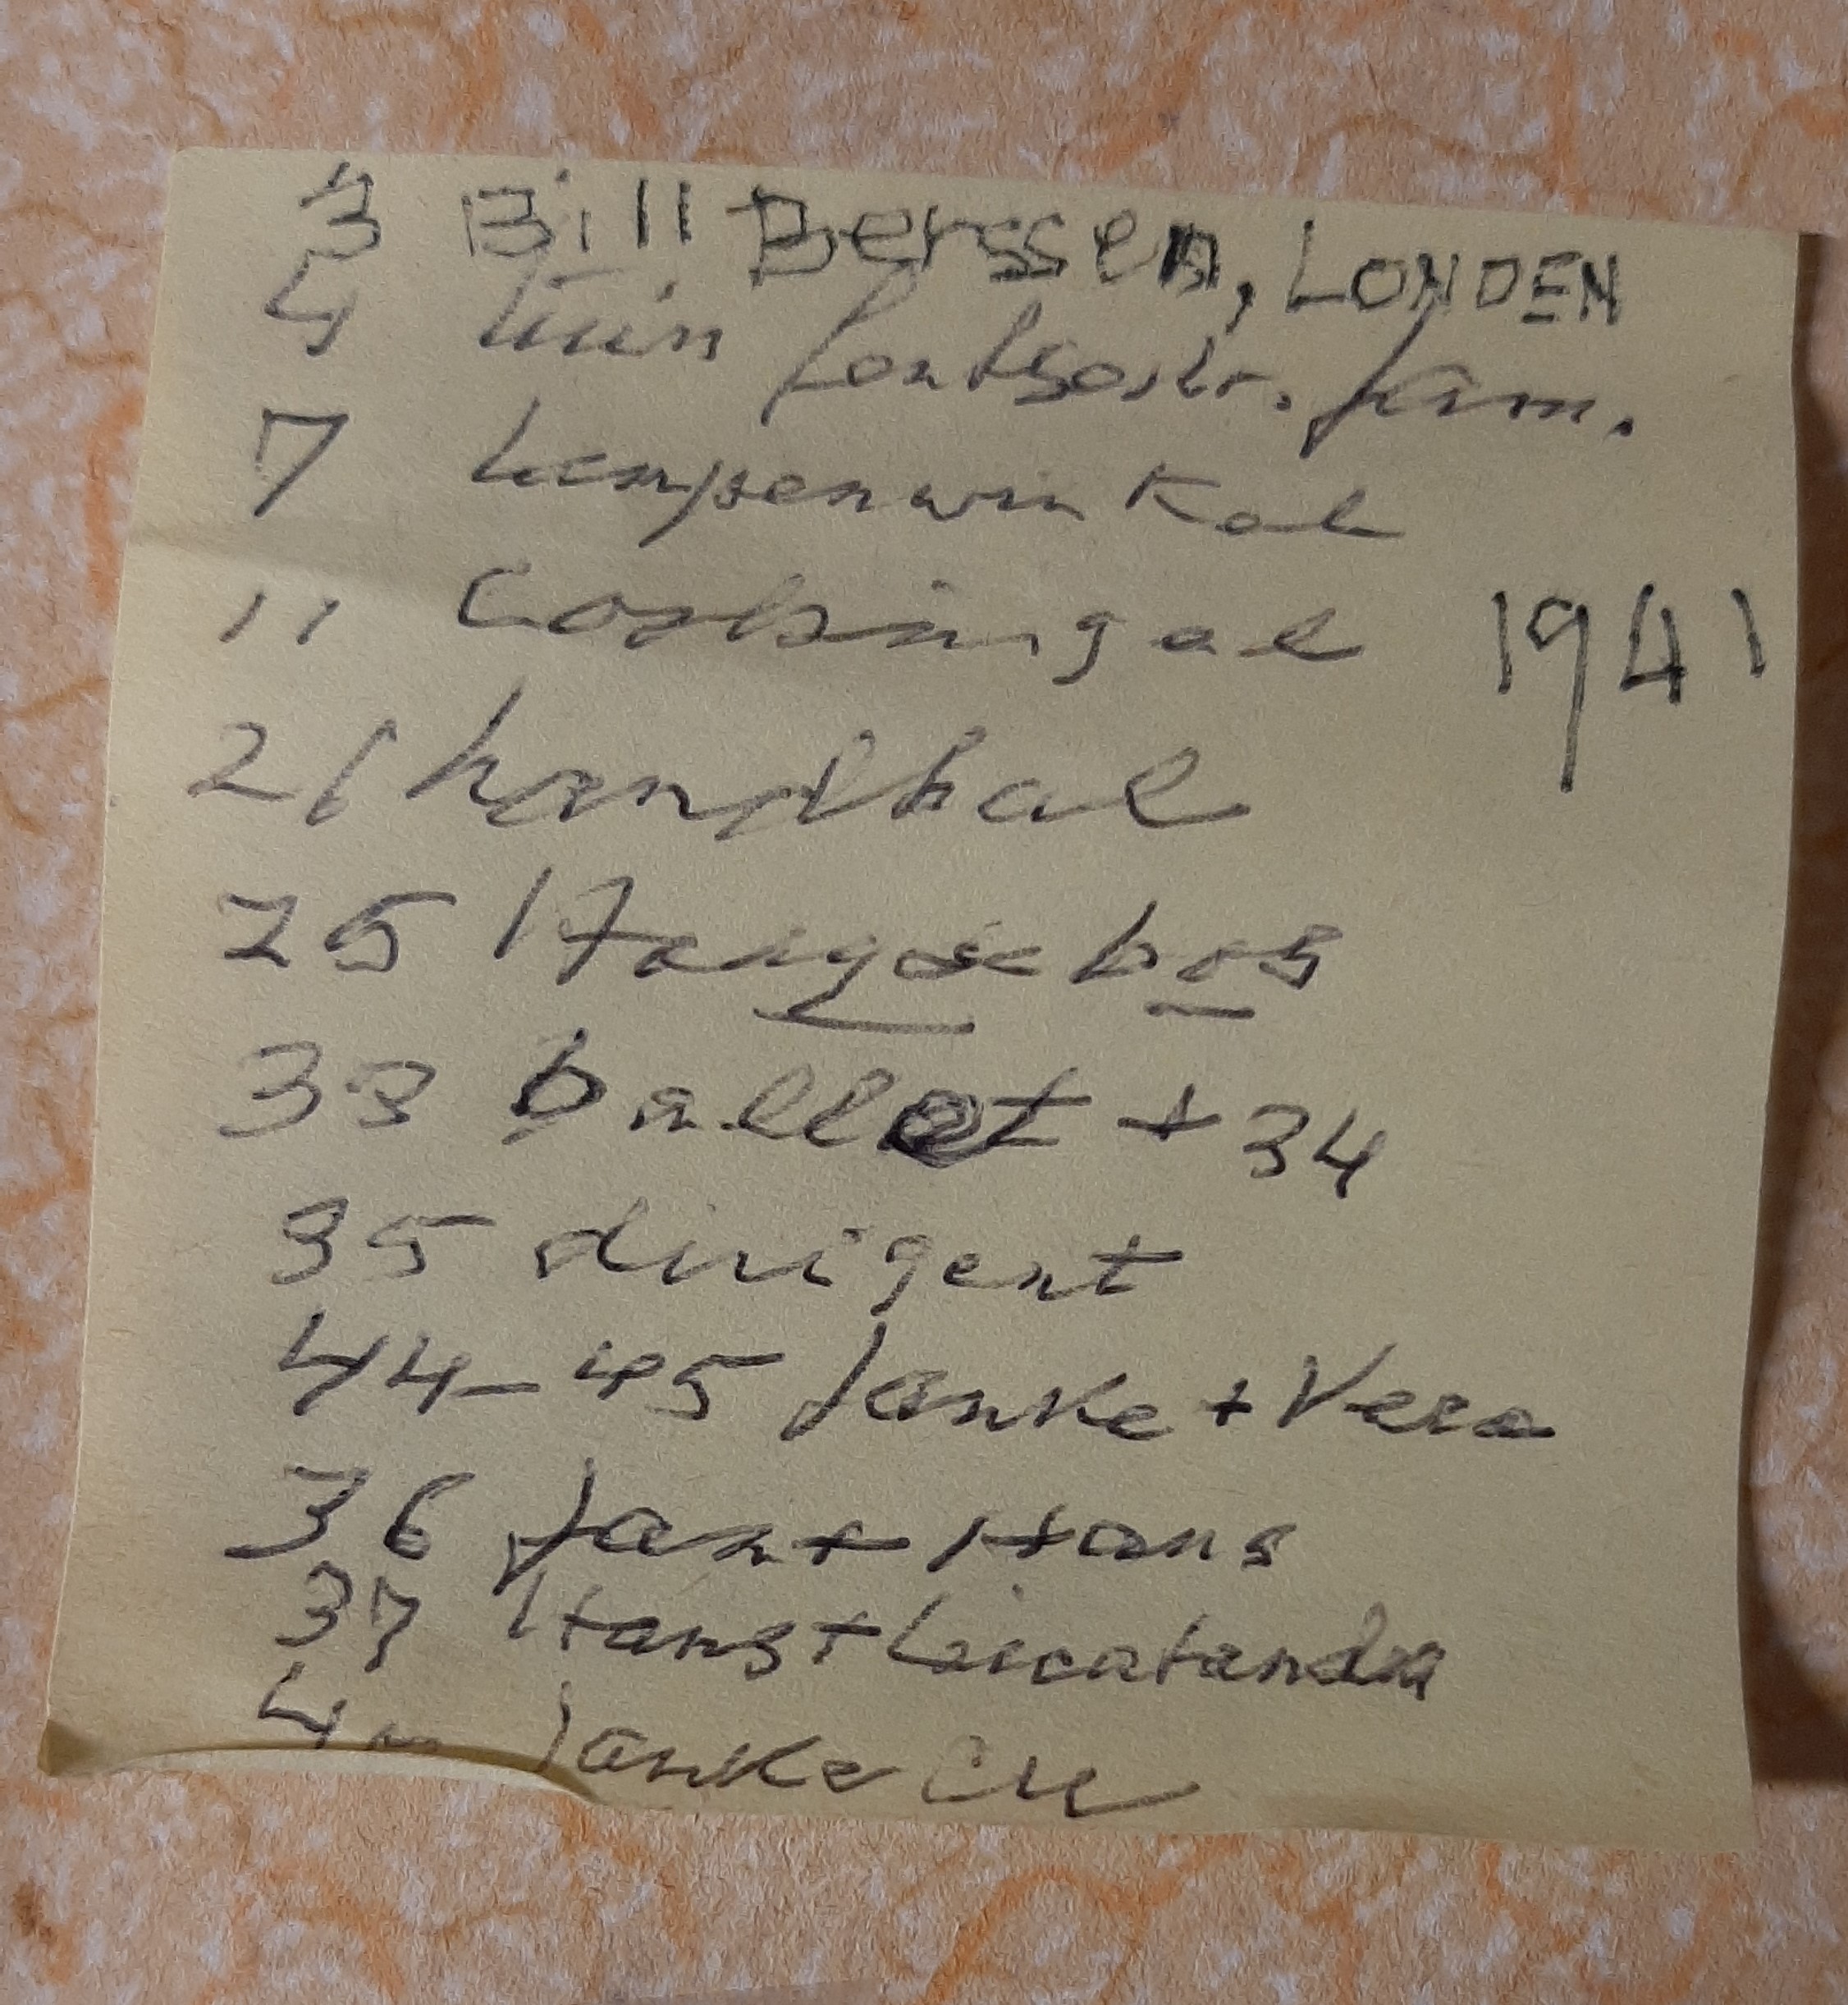 3 Bill Berssen, LONDEN
4 tuin fam.
7 lampenwinkel
11 1941
21 handbal
25 Hangoebos
33 ballet + 34
35 dirigent
44-45 Janke + Vera
36 Jan + Hans
37 Hans +
Janke